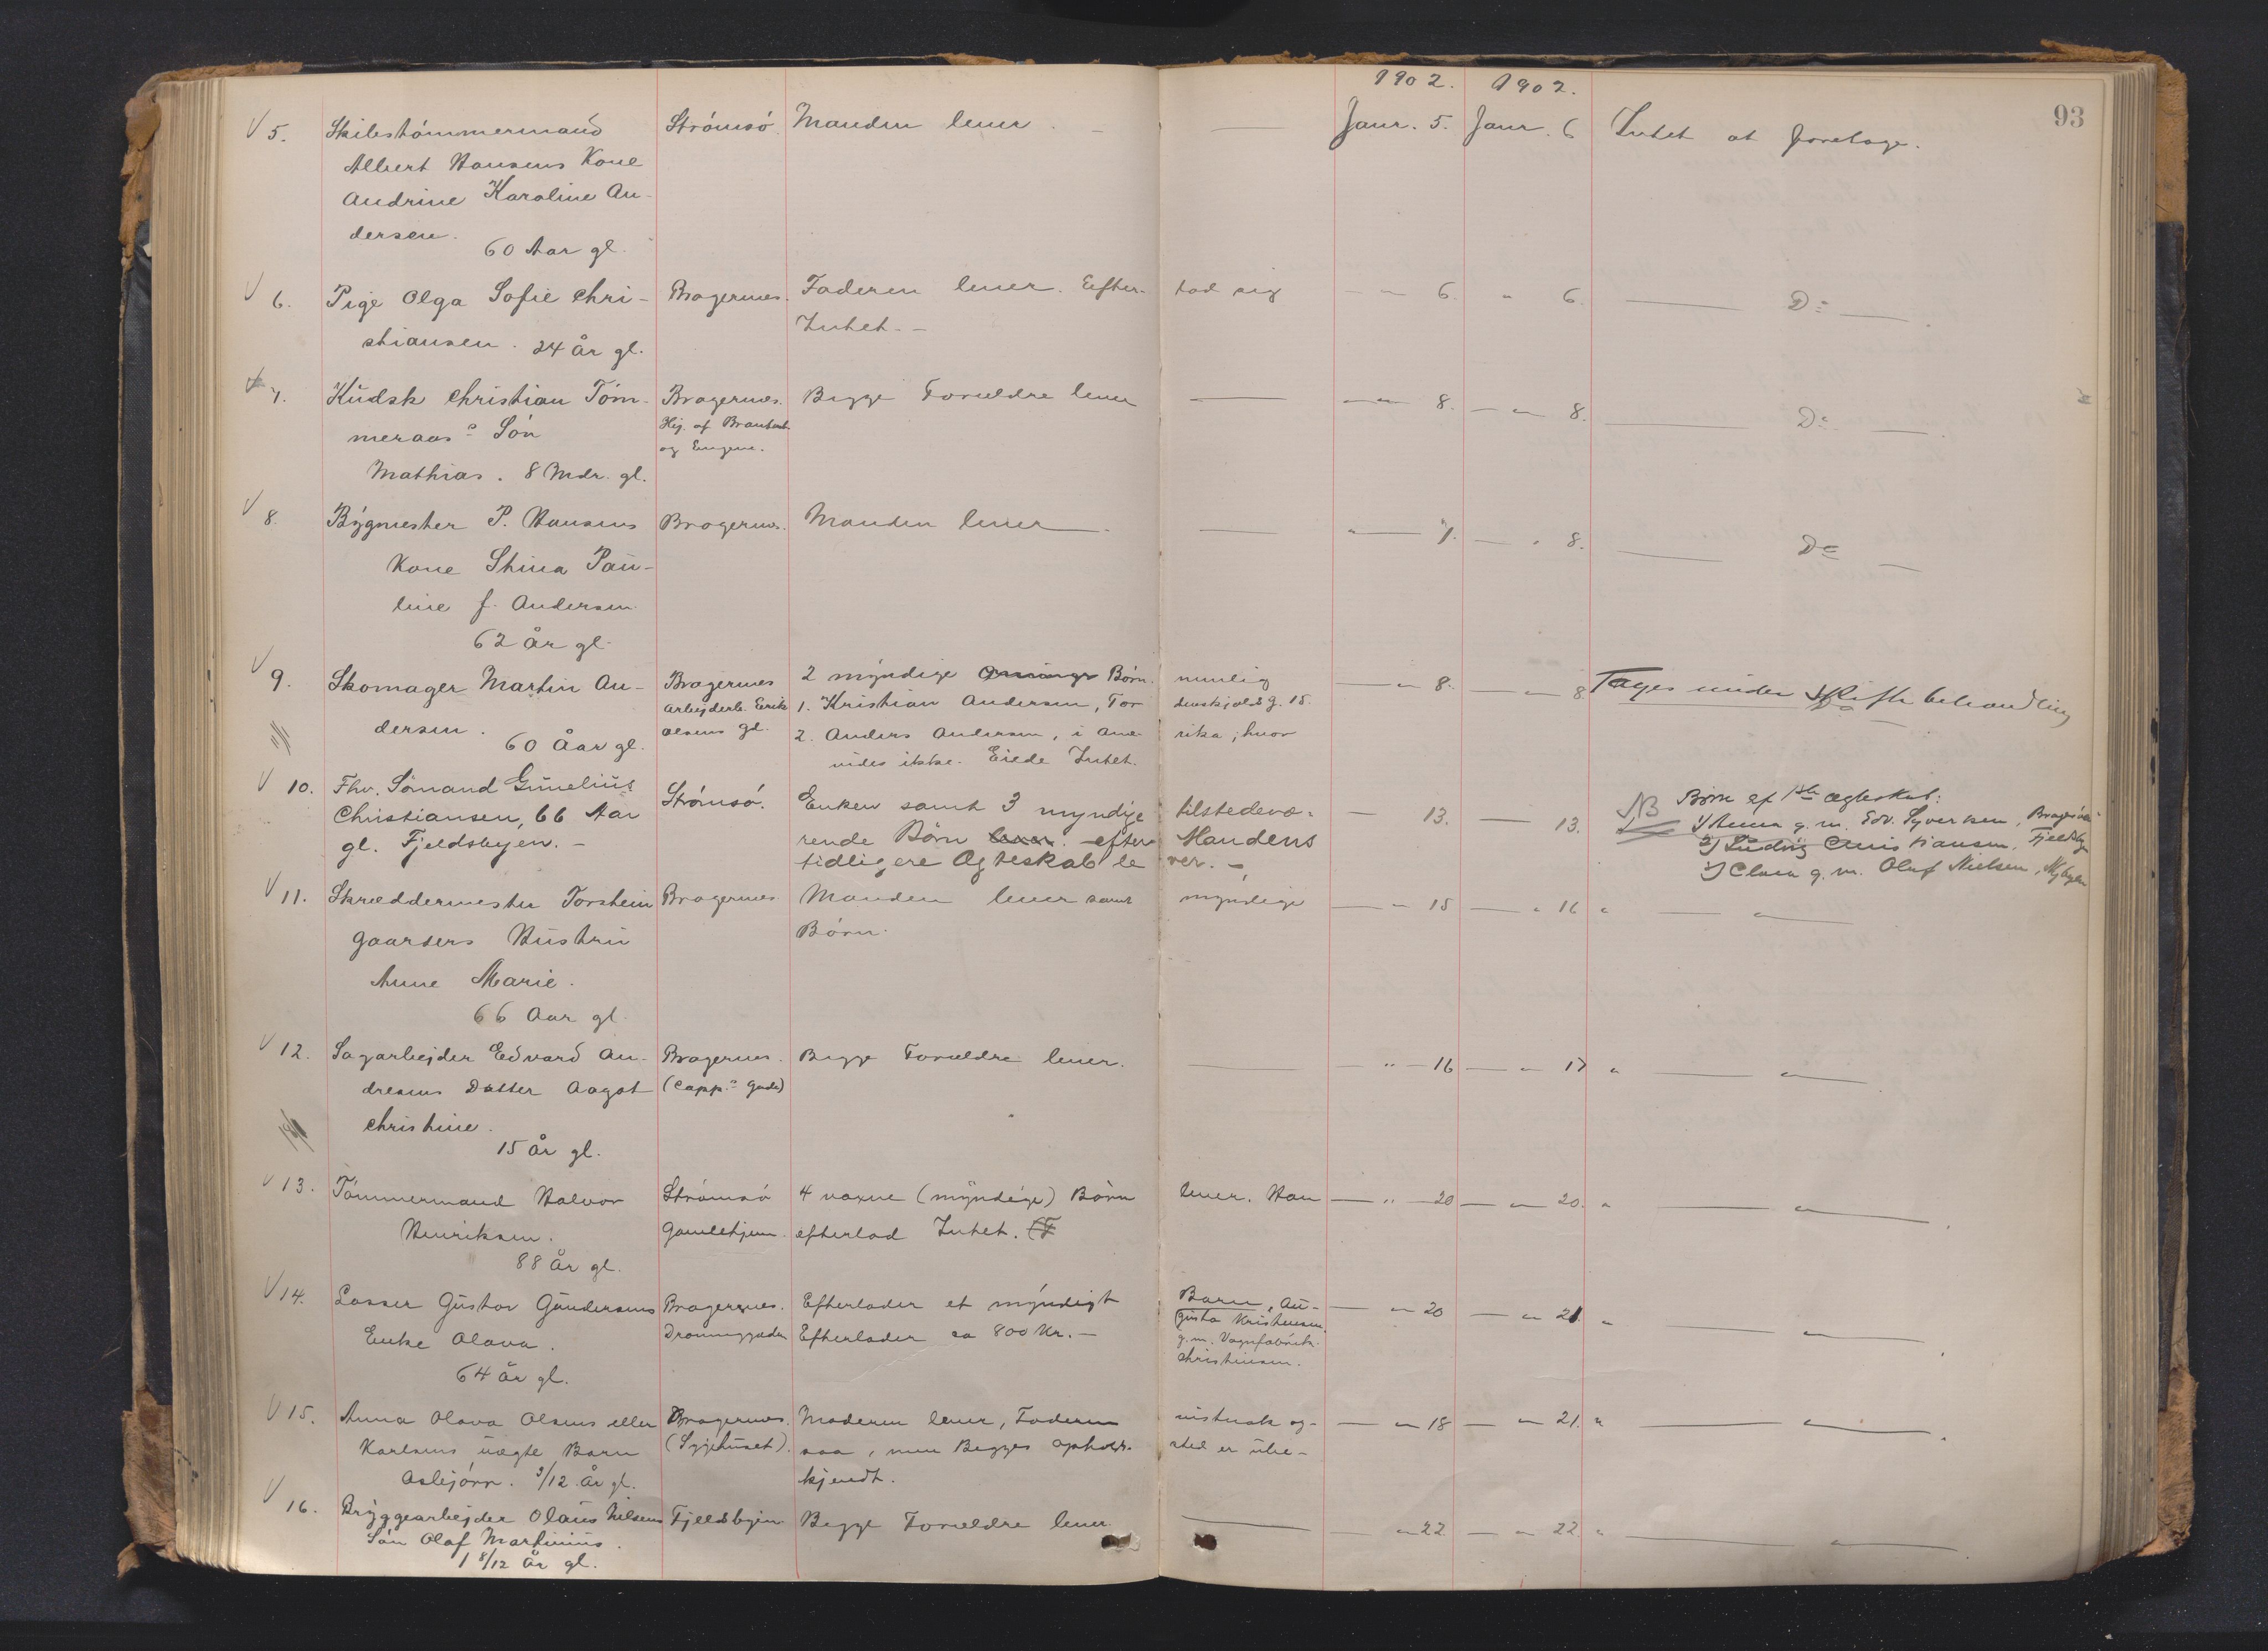 1902. 1902. 93
V 5. Skibstömmermand Strömsö. Manden lever. — Janr. 5. Janr. 6 Intet at foretage.
Albert Hansens Kone
Andrine Karoline An-
dersen.
60 Aar gl.
V 6. Pige Olga Sofie Chri- Bragernes. Faderen lever. Efter- lod sig — " 6. " 6. — Do —
Intet. —
stiansen. 24 år gl.
V 7. Kudsk Christian Töm- Bragernes. Begge Forældre lever — — " 8. — " 8. — Do —
meraas's Sön Hj. af
og Eugene.
Mathias. 8 Mdr. gl.
V 8. Bygmester P. Hansens Bragernes. Manden lever — — " 7. — " 8. — Do —
Kone Stina Pau-
line f. Andersen.
62 år gl.
V 9. Skomager Martin An- Bragernes 2 myndige Börn. nemlig — " 8. — " 8 Tages under Skiftebehandling
Arbejderb. Eerik 1. Kristian Andersen, Tor denskjolds g. 15.
dersen. Olsens gd. 2. Anders Andersen, i Ame rika, hvor
60 Åar gl. vides ikke. Eiede Intet.
V 10. Fhv. Sömand Gunelius Strömsö. Enken samt 3 myndige tilstedevæ- — 13. — 13. NB Börn af 1ste ægteskab:
Christiansen, 66 Aar rende Börn lever. efter Mandens 1) Anna g. m. Edv. Syversen, Bragesveien
gl. Fjeldsbyen. — tidligere Ægteskab le ver. — 2) Ludvig Christiansen, Fjeldsby
3) Clara g. m. Oluf Nielsen, Nybyen
V 11. Skræddermester Torstein Bragernes Manden lever samt myndige — " 15 — " 16 " — "
Gaarders Hustru Börn.
Anne Marie.
66 Aar gl.
V 12. Sagarbejder Edvard An- Bragernes. Begge Forældre lever. — — " 16 — " 17 " — "
dresens Datter Aagot (Capp.s Gade)
Christine.
15 år gl.
V 13. Tömmermand Halvor Strömsö 4 voxne (myndige) Börn lever. Han — " 20 — " 20. " — "
Henriksen. Gamlehjem. efterlod Intet.
88 år gl.
V 14. Losser Gustav Gundersens Bragernes. Efterlader et myndigt Barn, Au- — " 20 — " 21 " — "
Enke Olava. Dronninggaden Efterlader ca 800 Kr. — gusta Kristensen,
g. m. Vognfabrik.
Christensen.
64 år gl.
V 15. Anna Olava Olsens eller Bragernes. Moderen lever, Faderen vistnok og- — " 18 — " 21. " — "
Karlsens uægte Barn (Sygehuset). saa, men Begges opholds- sted er ube-
Asbjörn. 3/12 År gl. kjendt.
V 16. Bryggearbejder Olaus Nilsens Fjeldsbyen Begge Forældre lever. — — " 22. — " 22. " — "
Sön Olaf Martinius.
1 8/12 År gl.